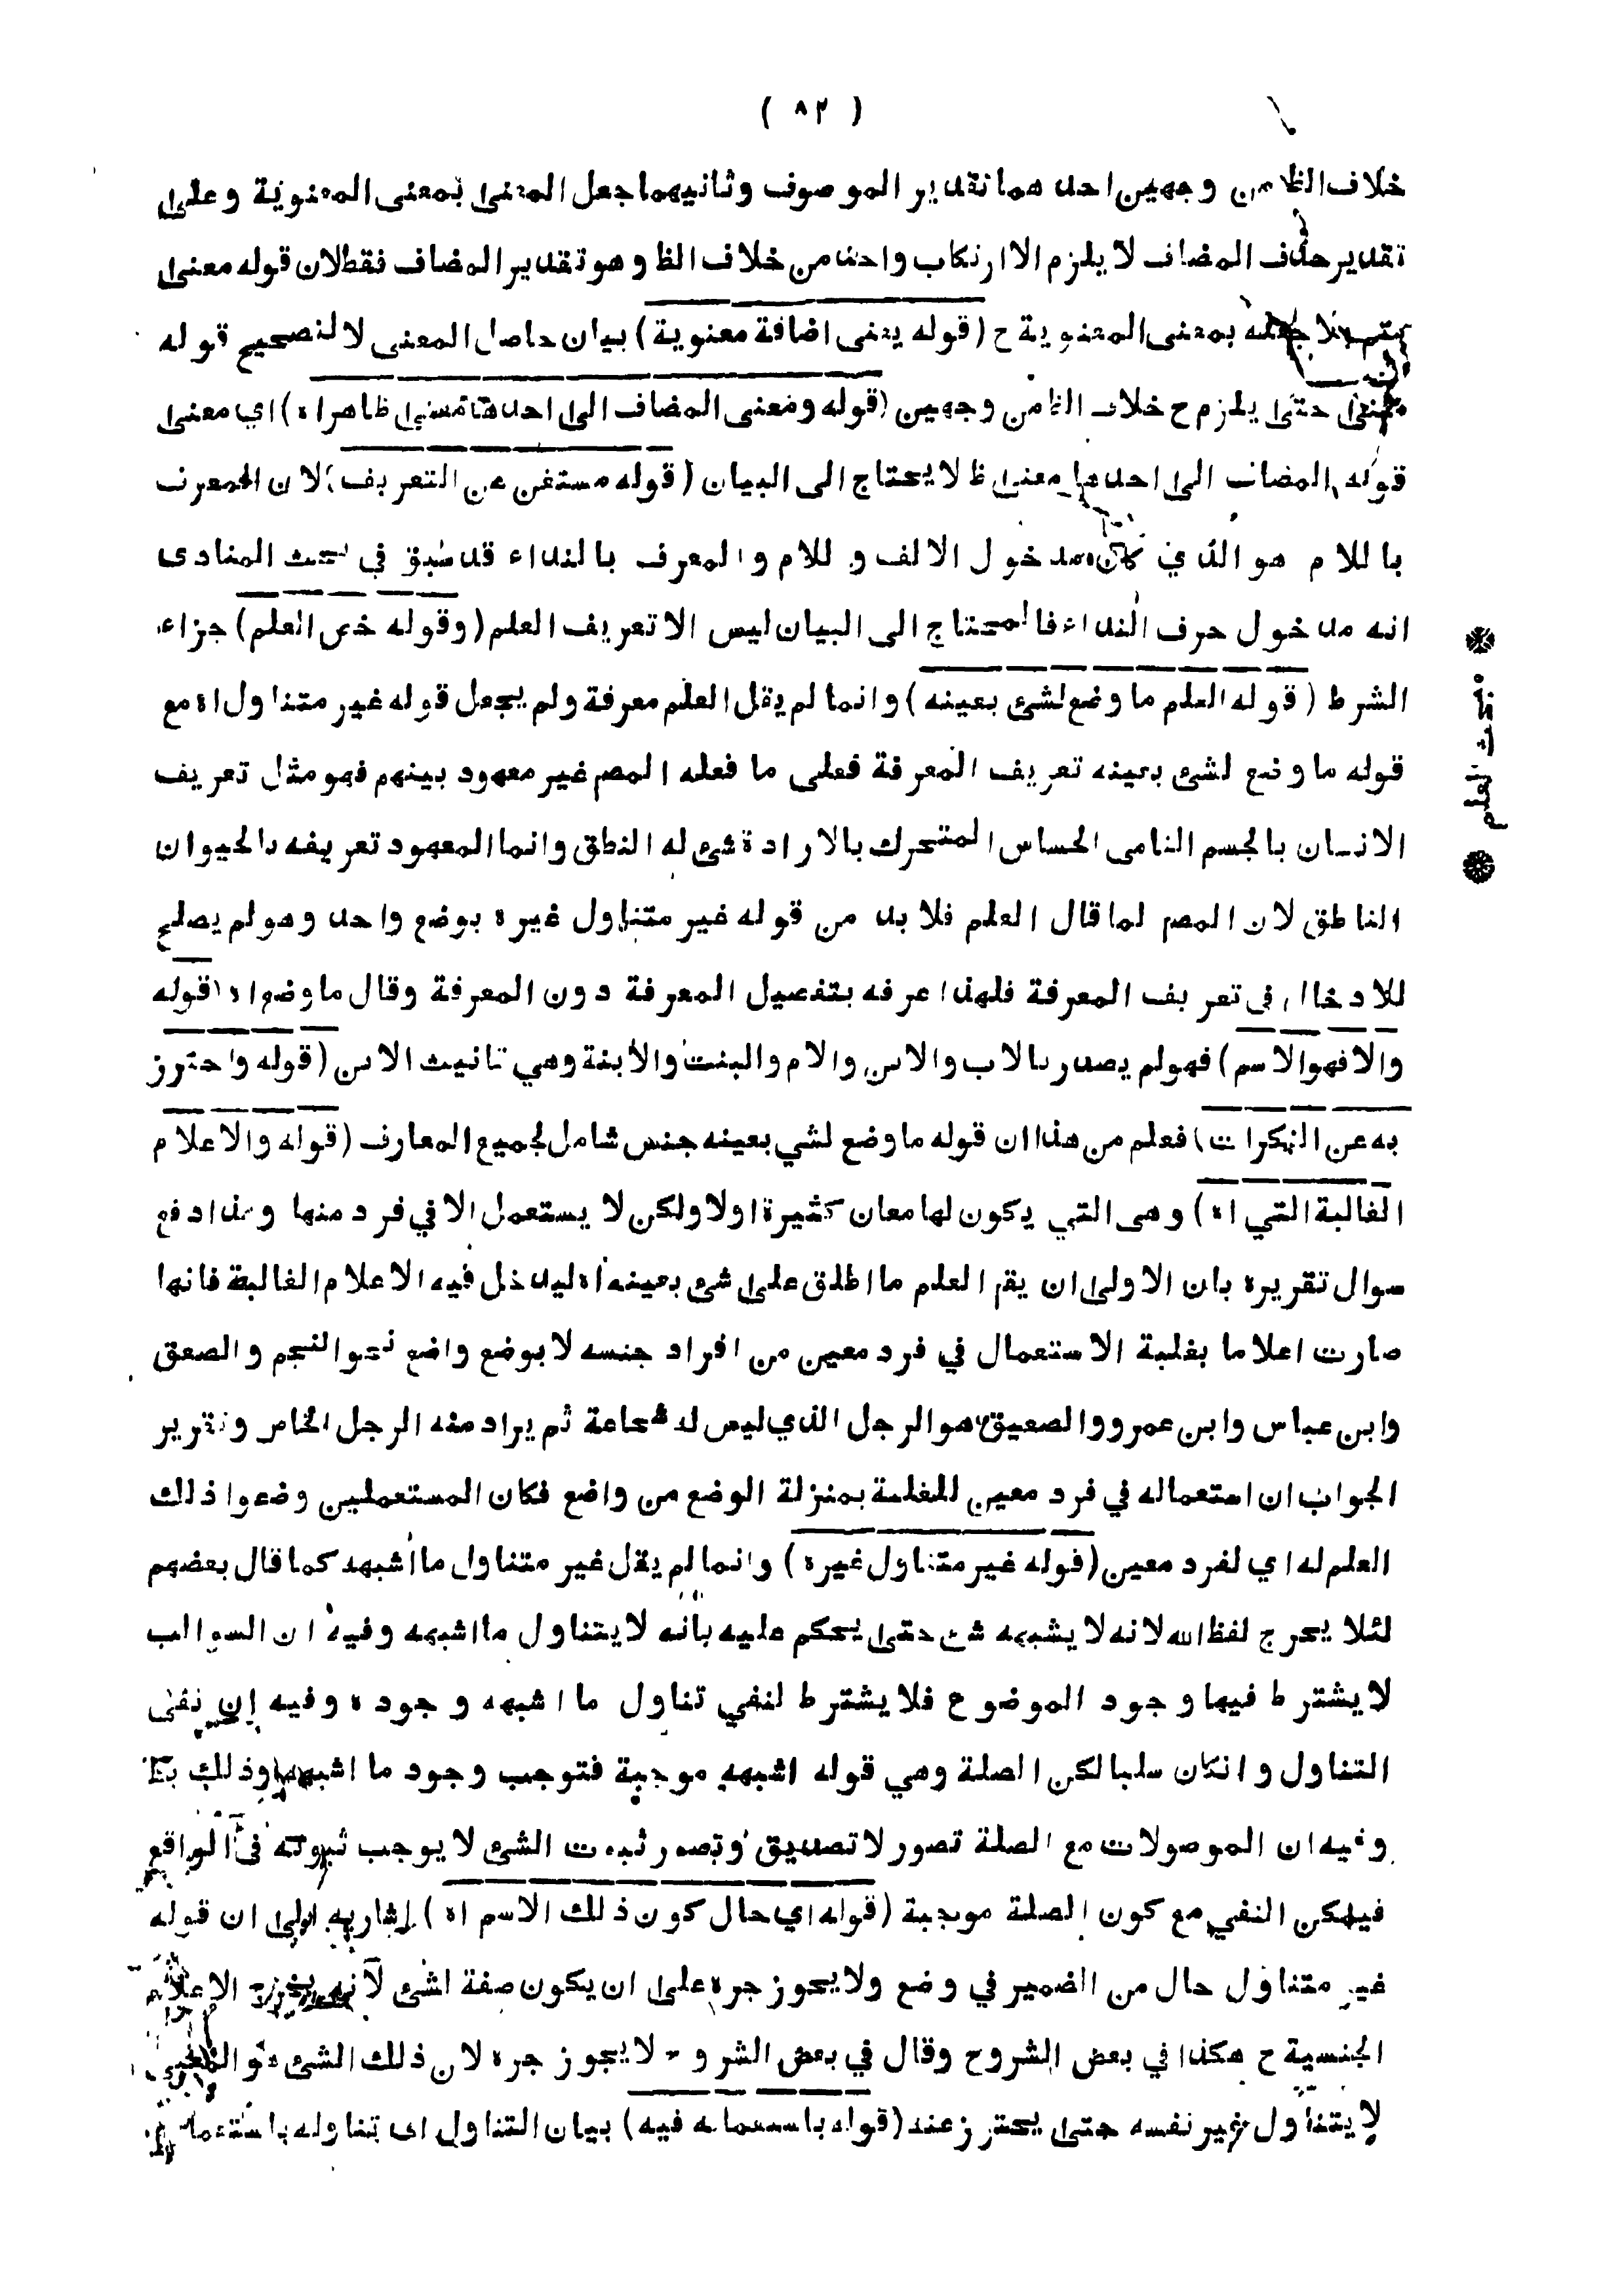 ( ٨٢ )
خلاف الظاهر من وجهين احدهما تقدير الموصوف وثانيهما جعل المعنى بمعنى المعنوية وعلى
تقدير حذف المضاف لا يلزم الا ارتكاب واحد من خلاف الظ وهو تقدير المضاف فقط لان قوله معنى
بمعنى المعنوية ح (قوله يعنى اضافة معنوية) بيان حاصل المعنى لا لتصحيح قوله
معنى حتى يلزم ح خلاف الظ من وجهين (قوله ومعنى المضاف الى احدها معنى ظاهر اه) اي معنى
قوله المضاف الى احدها معنى ظ لا يحتاج الى البيان (قوله مستغن عن التعريف) لان المعرف
باللام هو الذي كان مدخول الالف و للام والمعرف بالنداء قد سبق في بحث المنادى
انه مدخول حرف النداء فالمحتاج الى البيان ليس الا تعريف العلم (وقوله خص العلم) جزاء
الشرط (قوله العلم ما وضع لشئ بعينه) وانما لم يقل العلم معرفة ولم يجعل قوله غير متناول اه مع
قوله ما وضع لشئ بعينه تعريف المعرفة فعلى ما فعله المص غير معهود بينهم فهو مثل تعريف
الانسان بالجسم النامى الحساس المتحرك بالارادة شئ له النطق وانما المعهود تعريفه بالحيوان
الناطق لان المص لما قال العلم فلا بد من قوله غير متناول غيره بوضع واحد وهو لم يصلح
للادخال فى تعريف المعرفة فلهذا عرفه بتفصيل المعرفة دون المعرفة وقال ما وضع اه (قوله
والا فهو الاسم) فهو لم يصدر بالاب والابن والام والبنت والابنة وهي تانيث الابن (قوله واحترز
به عن النكرات) فعلم من هذا ان قوله ما وضع لشي بعينه جنس شامل لجميع المعارف (قوله والاعلام
الغالبة التي اه) وهى التي يكون لها معان كثيرة اولا ولكن لا يستعمل الا في فرد منها وهذا دفع
سوال تقريره بان الاولى ان يقم العلم ما اطلق على شئ بعينه اه ليدخل فيه الاعلام الغالبة فانها
صارت اعلاما بغلبة الاستعمال في فرد معين من افراد جنسه لا بوضع واضع نحو النجم والصعق
وابن عباس وابن عمرو والصعيق هو الرجل الذي ليس له شجاعة ثم يراد منه الرجل الخاص وتقرير
الجواب ان استعماله في فرد معين للغلبة بمنزلة الوضع من واضع فكان المستعملين وضعوا ذلك
العلم له اي لفرد معين (قوله غير متناول غيره) وانما لم يقل غير متناول ما اشبهه كما قال بعضهم
لئلا يخرج لفظ الله لانه لا يشبهه شئ حتى يحكم عليه بانه لا يتناول ما اشبهه وفيه ان السوالب
لا يشترط فيها وجود الموضوع فلا يشترط لنفي تناول ما اشبهه وجوده وفيه ان نفى
التناول وانكان سلبا لكن الصلة وهي قوله اشبهه موجبة فتوجب وجود ما اشبهه وذلك بط
وفيه ان الموصولات مع الصلة تصور لا تصديق وتصور ثبوت الشئ لا يوجب ثبوته فى الواقع
فيمكن النفي مع كون الصلة موجبة (قوله اي حال كون ذلك الاسم اه) اشار به الى ان قوله
غير متناول حال من الضمير في وضع ولا يجوز جره على ان يكون صفة لشئ لانه يخرج الاعلام
الجنسية ح هكذا في بعض الشروح وقال في بعض الشروح لا يجوز جره لان ذلك الشئ هو
لا يتناول غير نفسه حتى يحترز عنه (قوله باستعماله فيه) بيان التناول اى تناوله باستعماله
* مبحث العلم *